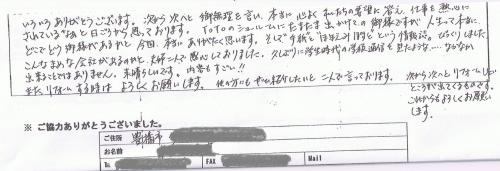 いろいろありがとうございます。次から次へと御無理を言い、本当に心よく私たちの希望に答え、仕事を熱心に
されているなあと日ごろから思っております。TOTOのショールームにたまたま出かけての御縁ですが人生って本当に
どこでどう御縁があるかと今回、本当にありがたく思います。そして手紙と「ほほえみ107号」という情報誌。びっくりしました
こんなまめな会社があるのかと夫婦二人で感心しておりました。久しぶりに学生時代の学級通信を見たような…なかなか
出来ることではありません。素晴らしいです。内容もすごい!!
またリフォームする時はよろしくお願いします。他の方にもぜひ紹介したいと二人で言っております。
次から次へとリフォームしたい
ところが出てくるものです。
これからもよろしくお願い
します。
※ ご協力ありがとうございました。
ご住所 豊橋市
お名前
TEL FAX Mail